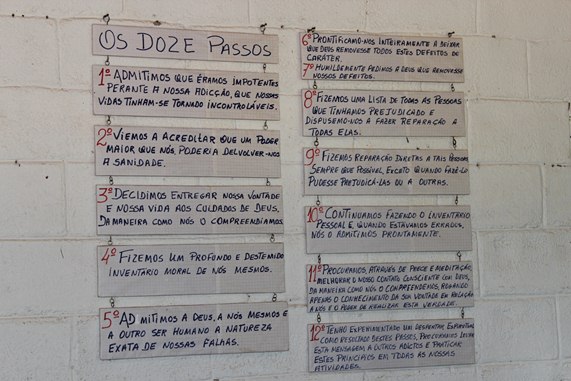 OS DOZE PASSOS
1º ADMITIMOS QUE ÉRAMOS IMPOTENTES
PERANTE A NOSSA ADICÇÃO, QUE NOSSAS
VIDAS TINHAM-SE TORNADO INCONTROLÁVEIS.
2º VIEMOS A ACREDITAR QUE UM PODER
MAIOR QUE NÓS, PODERIA DELVOLVER-NOS
A SANIDADE.
3º DECIDIMOS ENTREGAR NOSSA VONTADE
E NOSSA VIDA AOS CUIDADOS DE DEUS,
DA MANEIRA COMO NÓS O COMPREENDÍAMOS.
4º FIZEMOS UM PROFUNDO E DESTEMIDO
INVENTÁRIO MORAL DE NÓS MESMOS.
5º ADMITIMOS A DEUS, A NÓS MESMOS E
A OUTRO SER HUMANO A NATUREZA
EXATA DE NOSSAS FALHAS.
6º PRONTIFICAMO-NOS INTEIRAMENTE A DEIXAR
QUE DEUS REMOVESSE TODOS ESTES DEFEITOS DE
CARÁTER.
7º HUMILDEMENTE PEDIMOS A DEUS QUE REMOVESSE
NOSSOS DEFEITOS.
8º FIZEMOS UMA LISTA DE TODAS AS PESSOAS
QUE TÍNHAMOS PREJUDICADO E
DISPUSEMO-NOS A FAZER REPARAÇÃO A
TODAS ELAS.
9º FIZEMOS REPARAÇÃO DIRETAS A TAIS PESSOAS
SEMPRE QUE POSSÍVEL, EXCETO QUANDO FAZÊ-LO
PUDESSE PREJUDICÁ-LAS OU A OUTRAS.
10º CONTINUAMOS FAZENDO O INVENTÁRIO
PESSOAL E, QUANDO ESTÁVAMOS ERRADOS,
NÓS O ADMITIMOS PRONTAMENTE.
11º PROCURAMOS, ATRAVÉS DE PRECE E MEDITAÇÃO,
MELHORAR O NOSSO CONTATO CONSCIENTE COM DEUS,
DA MANEIRA COMO NÓS O COMPREENDEMOS, ROGANDO
APENAS O CONHECIMENTO DA SUA VONTADE EM RELAÇÃO
A NÓS E O PODER DE REALIZAR ESTA VERDADE.
12º TENHO EXPERIMENTADO UM DESPERTAR ESPIRITUAL
COMO RESULTADO DESTES PASSOS, PROCURAMOS LEVAR
ESTA MENSAGEM A OUTROS ADICTOS E PRATICAR
ESTES PRINCÍPIOS EM TODAS AS NOSSAS
ATIVIDADES.